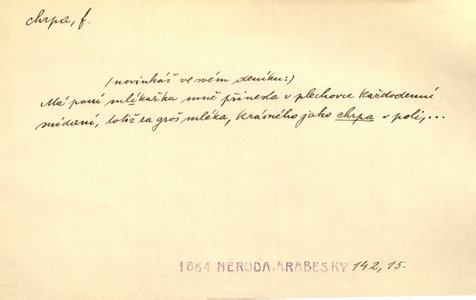 chrpa, f.
(novinkář ve svém deníku:)
Má paní mlékařka mně přinesla v plechovce každodenní
snídaní, totiž za groš mléka, krásného jako chrpa v poli,...
1864 NERUDA, ARABESKY 142, 15.